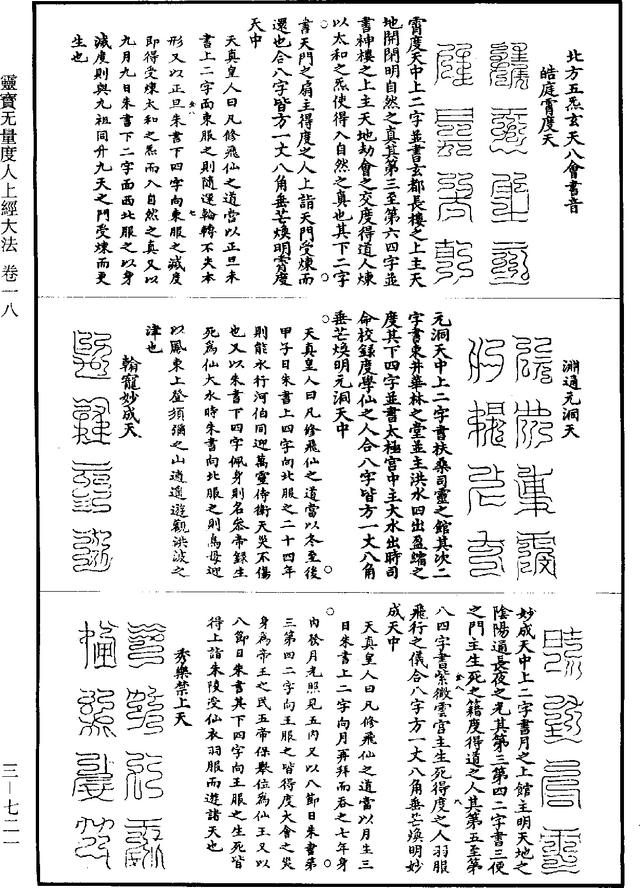 北方五炁玄天八會書音
皓庭霄度天
霄度天中上二字並書玄都長樓之上主天
地開閉明自然之真其第三至第六四字並
書神樓之上主天地劫會之交度得道人煉
以太和之炁使得入自然之真也其下二字
書天門之扇主得度之人上詣天門受煉而
還也合八字皆方一丈八角垂芒煥明霄度
天中
天真皇人曰凡修飛仙之道當以正旦朱
書上二字面東服之則隨運輪轉不失本
形又以正旦朱書下四字向東服之滅度
即得受煉太和之炁而入自然之真又以
九月九日朱書下二字面西北服之以身
滅度則與九祖同升九天之門受煉而更
生也
淵通元洞天
元洞天中上二字書扶桑司靈之館其次二
字書東井華林之堂並主洪水四出盈縮之
度其下四字並書太極宮中主大水出時司
命校錄度學仙之人合八字皆方一丈八角
垂芒煥明元洞天中
天真皇人曰凡修飛仙之道當以冬至後
甲子日朱書上四字向北服之二十四年
則能水行河伯同迎萬靈侍衛天災不傷
也又以朱書下四字佩身則名參帝錄生
死為仙大水時朱書向北服之則鳥母迎
以風東上登須彌之山逍遙遊觀洪波之
津也
翰寵妙成天
妙成天中上二字書月之上館主明天地之
陰陽通長夜之光其第三第四二字書三便
之門主生死之籍度得道之人其第五至第
八四字書紫微雲宮主生死得度之人羽服
飛行之儀合八字方一丈八角垂芒煥明妙
成天中
天真皇人曰凡修飛仙之道當以月生三
日朱書上二字向月再拜而吞之七年身
內發月光照見五內又以八節日朱書第
三第四二字向王服之皆得度大會之災
身為帝王之民五帝保舉位為仙王又以
八節日朱書其下四字向王服之生死皆
得上詣朱陵受仙衣羽服而遊諸天也
秀樂禁上天
靈寶无量度人上經大法　卷一八
三—七二一